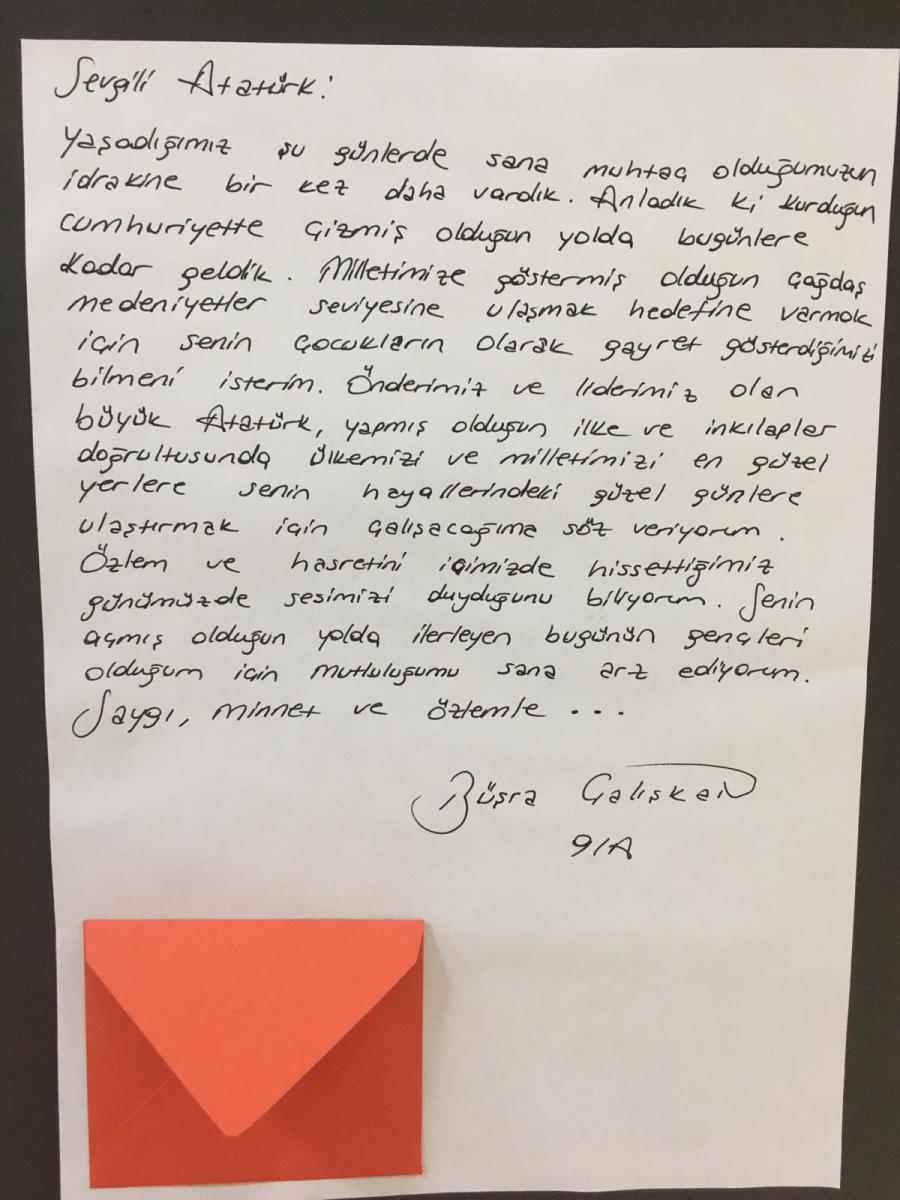 Sevgili Atatürk:
Yaşadığımız şu günlerde sana muhtaç olduğumuzun
idrakine bir kez daha vardık. Anladık ki kurduğun
cumhuriyette çizmiş olduğun yolda bugünlere
kadar geldik. Milletimize göstermiş olduğun çağdaş
medeniyetler seviyesine ulaşmak hedefine varmak
için senin çocukların olarak gayret gösterdiğimizi
bilmeni isterim. Önderimiz ve liderimiz olan
büyük Atatürk, yapmış olduğun ilke ve inkılapler
doğrultusunda ülkemizi ve milletimizi en güzel
yerlere senin hayallerindeki güzel günlere
ulaştırmak için çalışacağıma söz veriyorum.
Özlem ve hasretini içimizde hissettiğimiz
günümüzde sesimizi duyduğunu biliyorum. Senin
açmış olduğun yolda ilerleyen bugünün gençleri
olduğum için mutluluğumu sana arz ediyorum.
Saygı, minnet ve özlemle...
Büşra Çalışkan
9/A